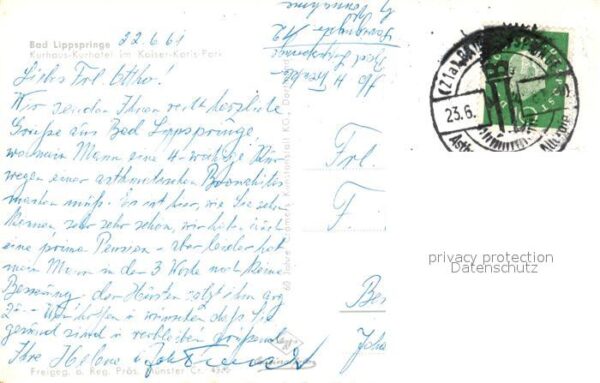 Bad Lippspringe 22.6.61
Kurhaus-Kurhotel im Kaiser-Karls-Park
Liebes Frl. Ottho!
Wir senden Ihnen recht herzliche
Grüße aus Bad Lippspringe,
wo mein Mann eine 4-wöchige Kur
wegen einer asthmatischen Bronchitis
machen muß. Es ist hier, wie Sie sehen
können, sehr sehr schön, wir haben auch
eine prima Pension - aber leider hat
mein Mann in der 3 Woche noch keine
Besserung, der Husten setzt ihm arg
zu -- Wir hoffen u. wünschen daß Sie
gesund sind u. verbleiben grüßend
Ihre Helene u.
Freigeg. d. Reg. Präs. Münster Cr.
Bad Lippspringe
Frl.
F.
Ber
Joha
23.6.
privacy protection
Datenschutz